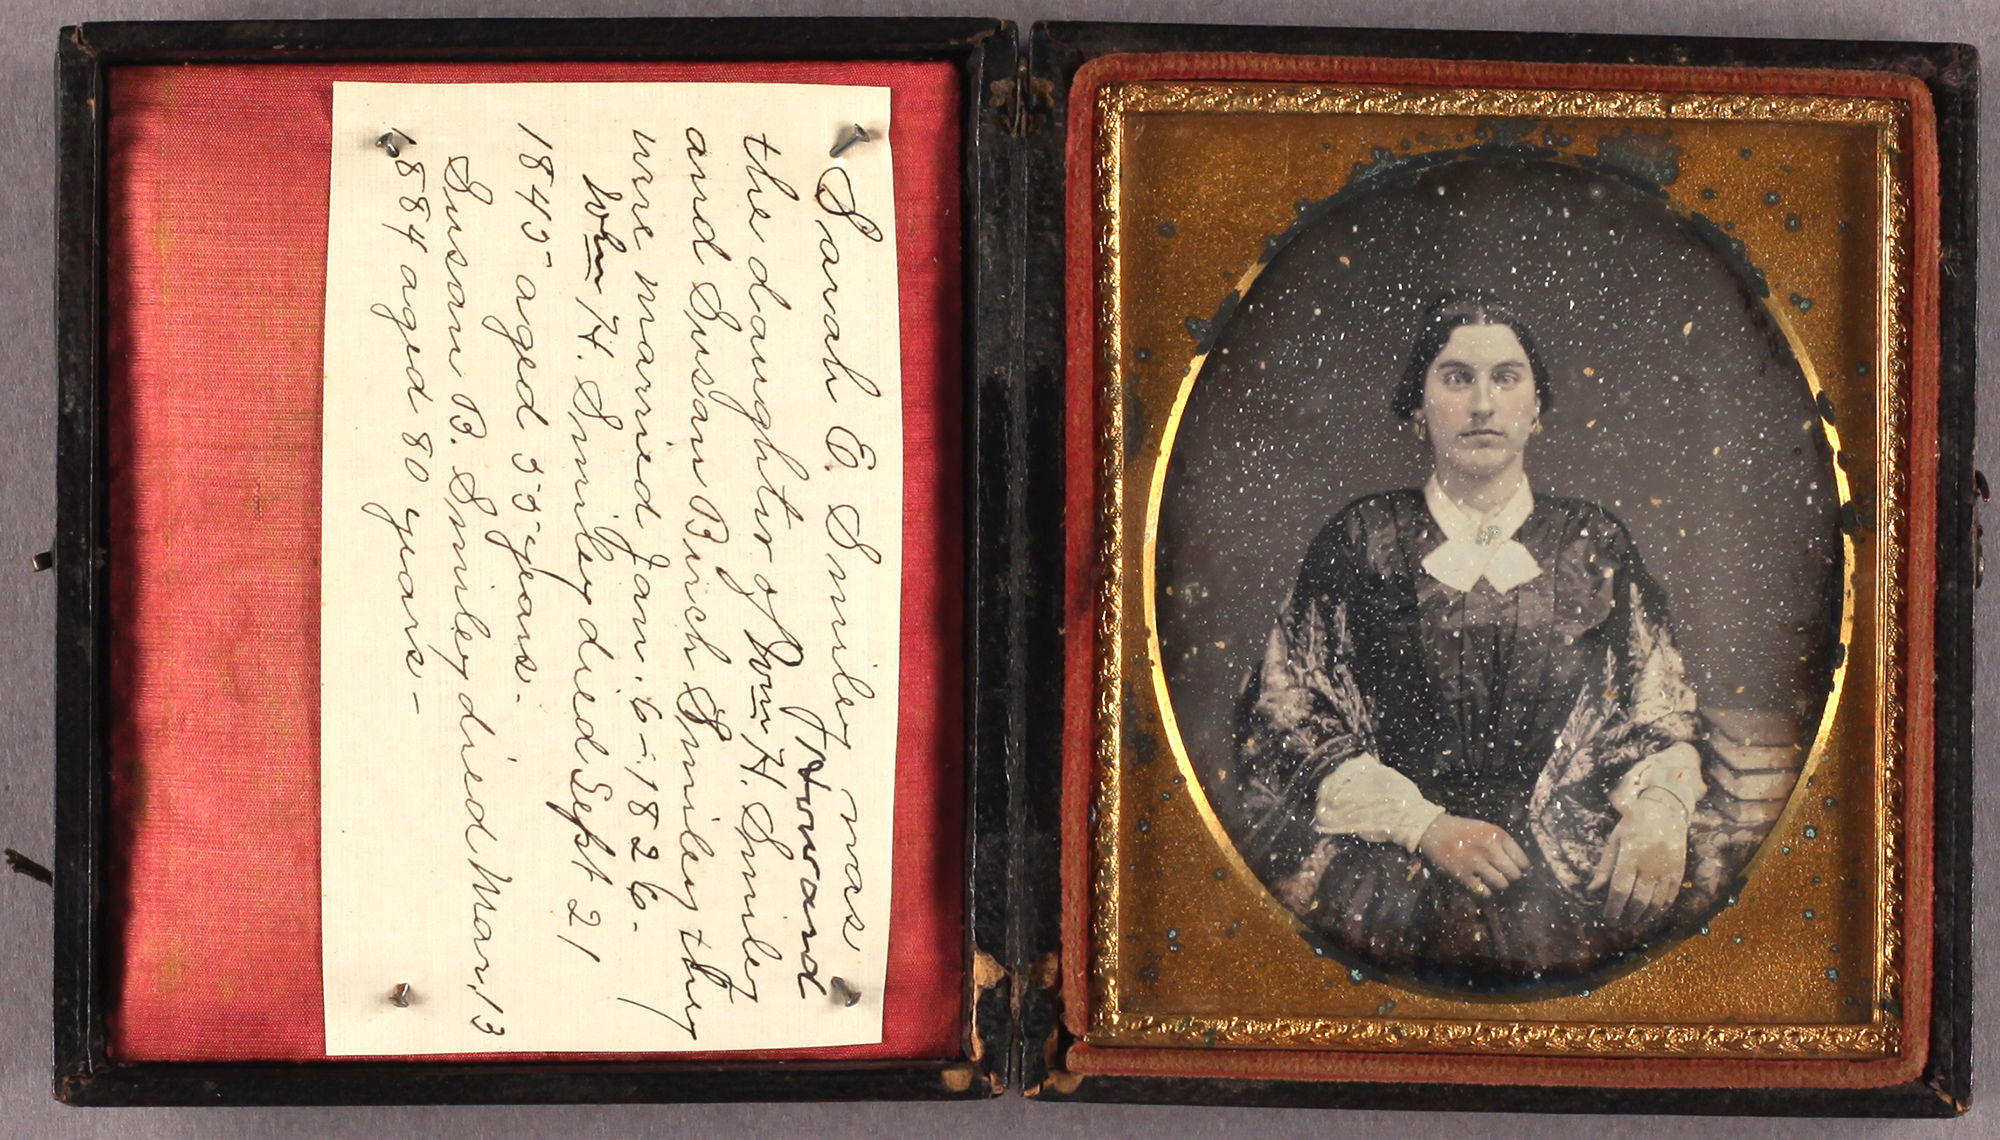 Sarah E. Smiley was
Howard
the daughter of Wm H. Smiley
and Susan Birch Smiley they
were married Jan. 6 - 1826.
Wm H. Smiley died Sept 21
1845 aged 55 years.
Susan B. Smiley died Mar. 13
1884 aged 80 years -